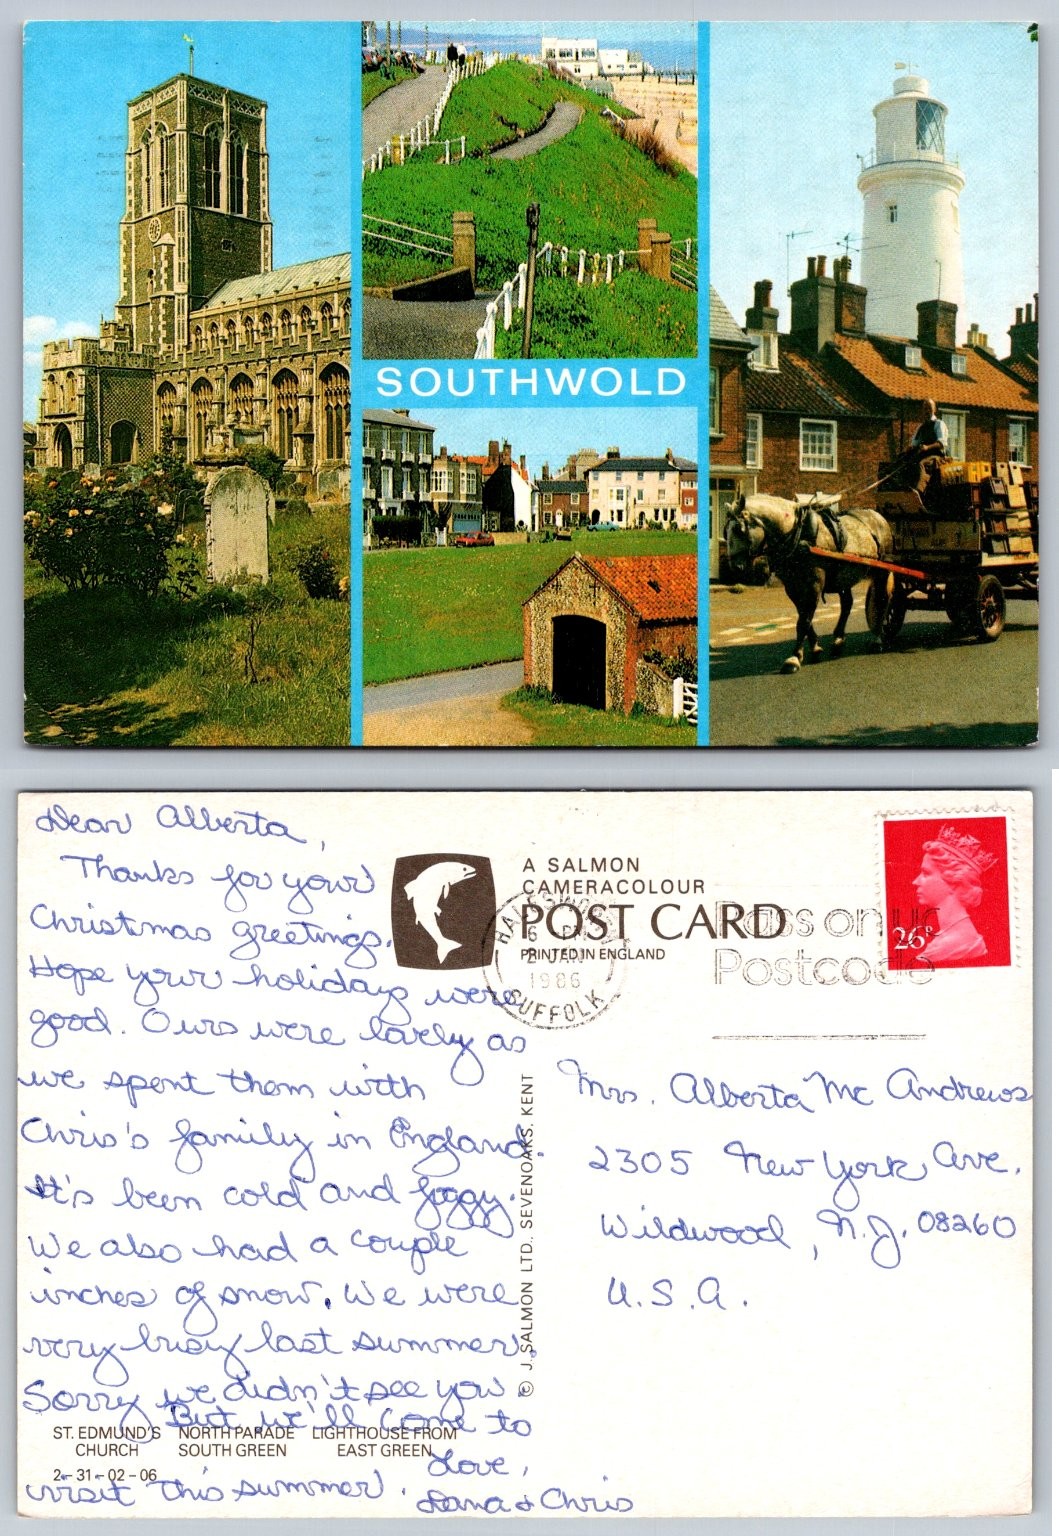 SOUTHWOLD
Dear Alberta,
Thanks for your
Christmas greetings.
Hope your holidays were
good. Ours were lovely as
we spent them with
Chris's family in England.
It's been cold and foggy.
We also had a couple
inches of snow. We were
very busy last summer.
Sorry we didn't see you.
But we'll come to
visit this summer.
Love,
Dana & Chris
A SALMON
CAMERACOLOUR
POST CARD
PRINTED IN ENGLAND
1986
SUFFOLK
Pass on ur
Postcode
26P
© J. SALMON LTD., SEVENOAKS, KENT
Mrs. Alberta Mc Andrews
2305 New York Ave.
Wildwood, N.J. 08260
U.S.A.
ST. EDMUND'S CHURCH
NORTH PARADE
SOUTH GREEN
LIGHTHOUSE FROM
EAST GREEN
2-31-02-06